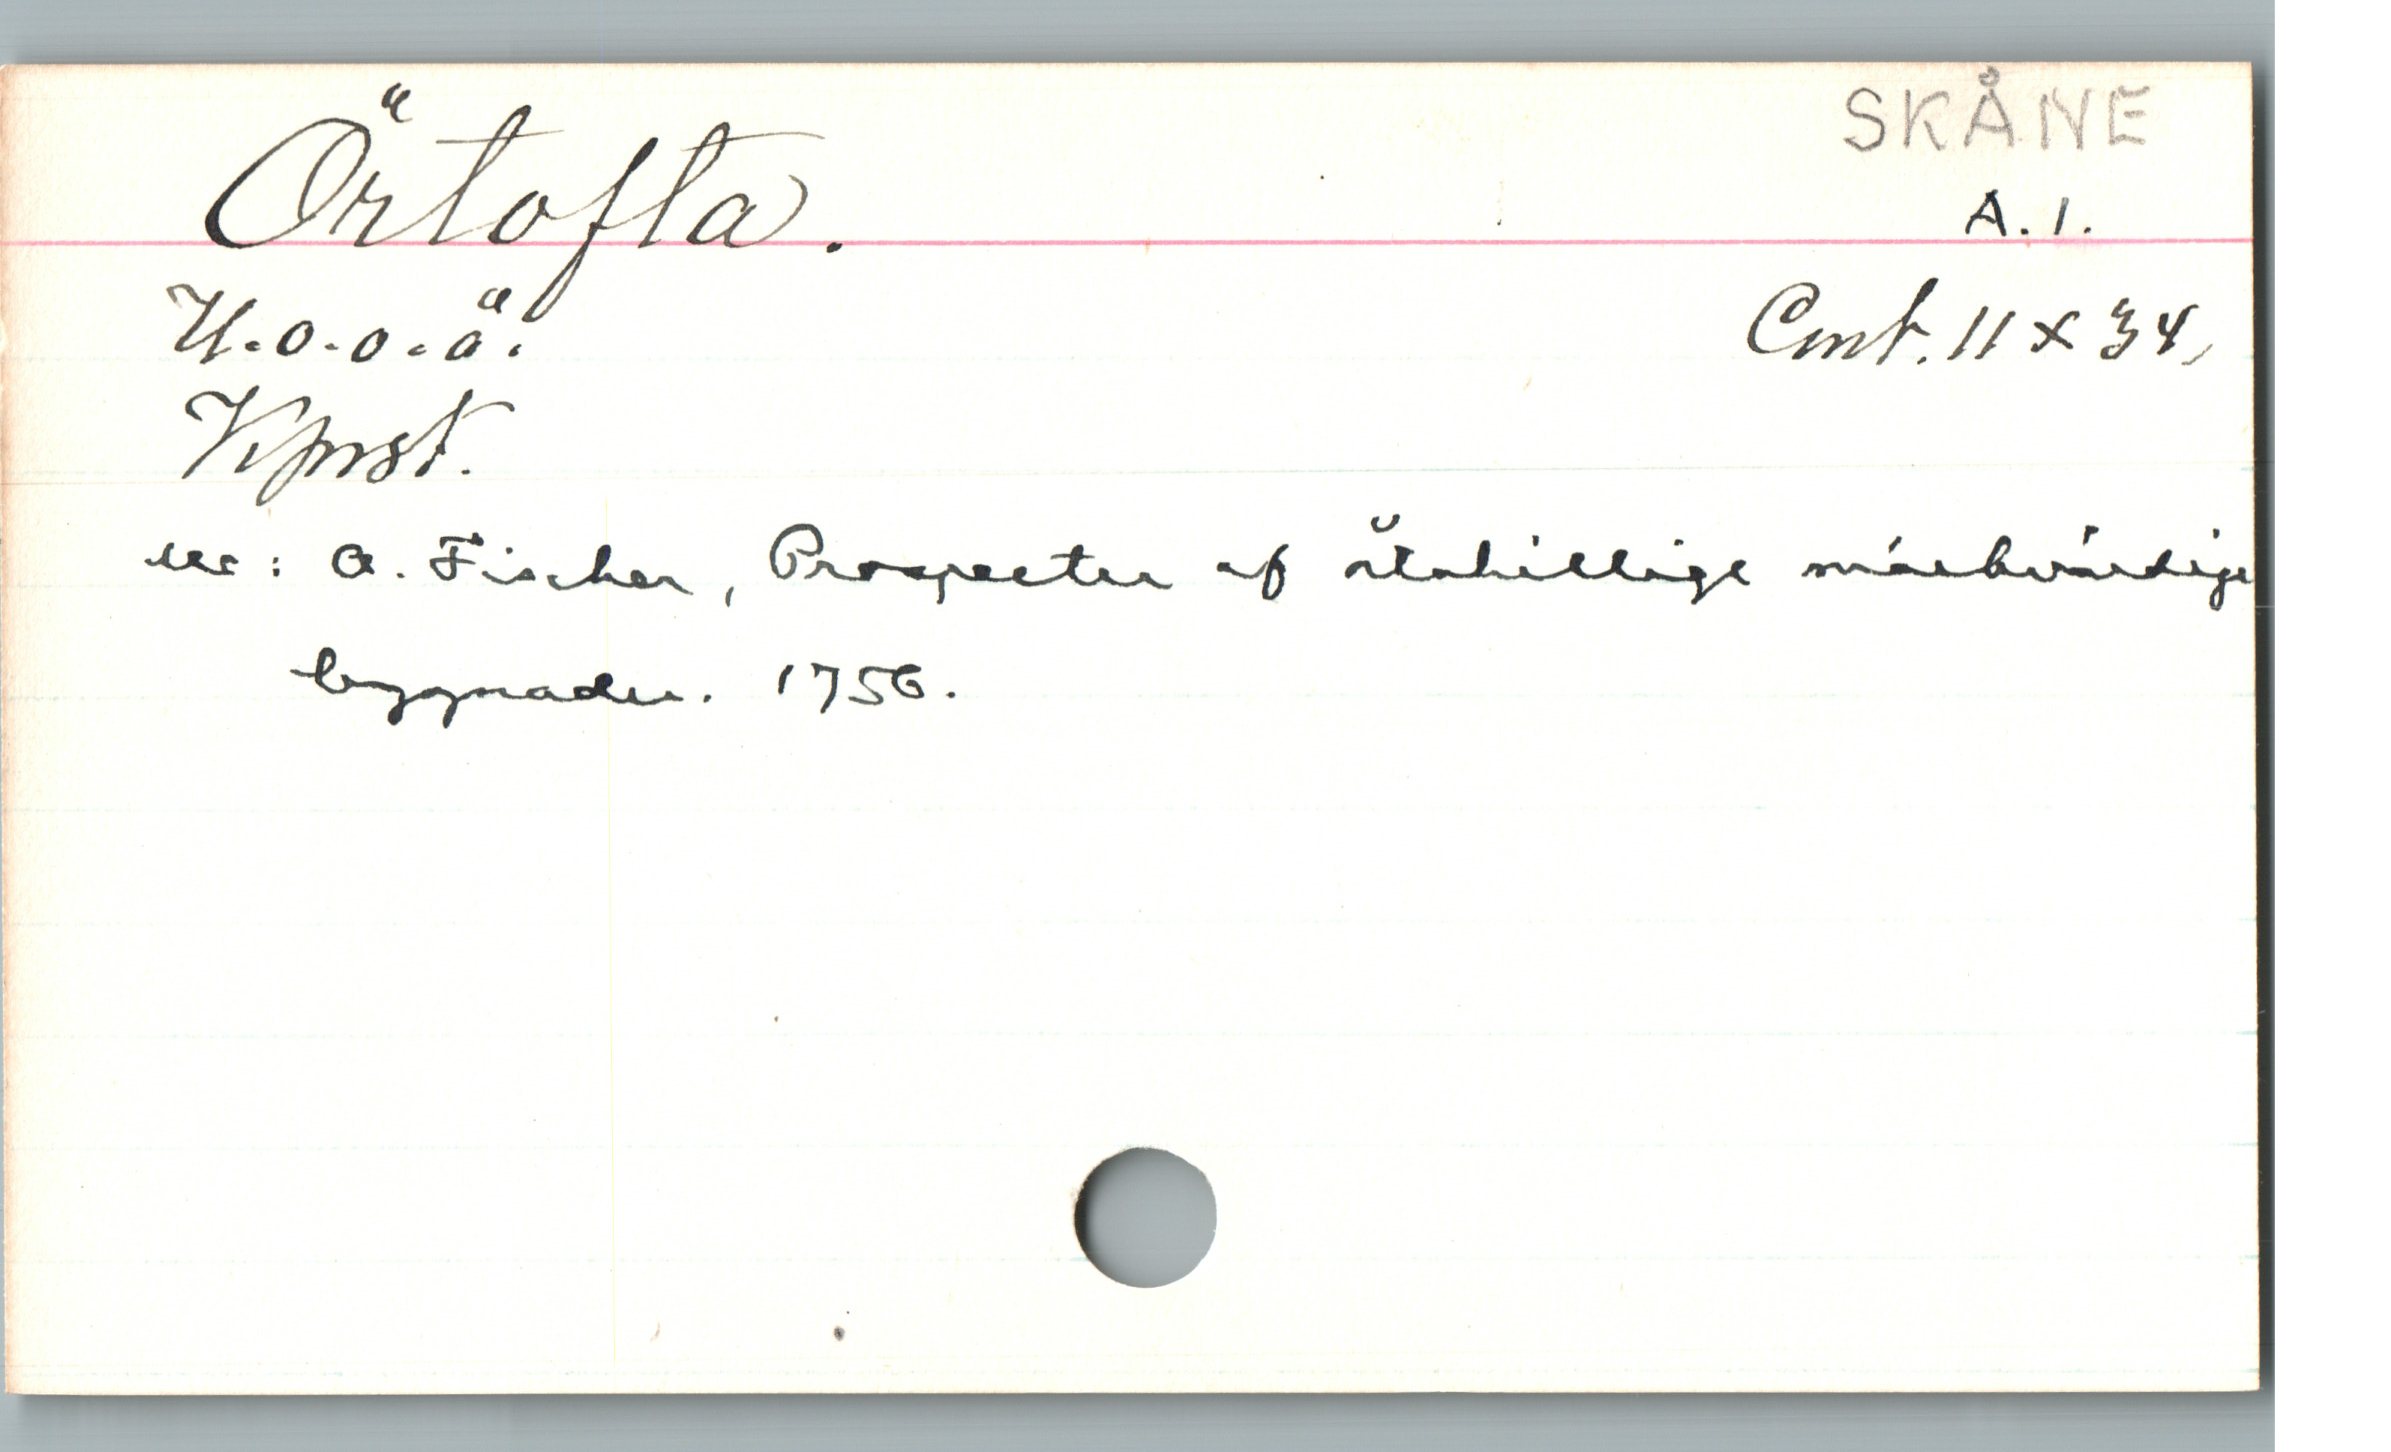 Örtofta.
SKÅNE
A. 1.
U.o.o.ä.
Cmt. 11 x 34,
Kpnst.
ur: A. Fischer, Prospecter af åtskillige märkvärdige
byggnader. 1756.